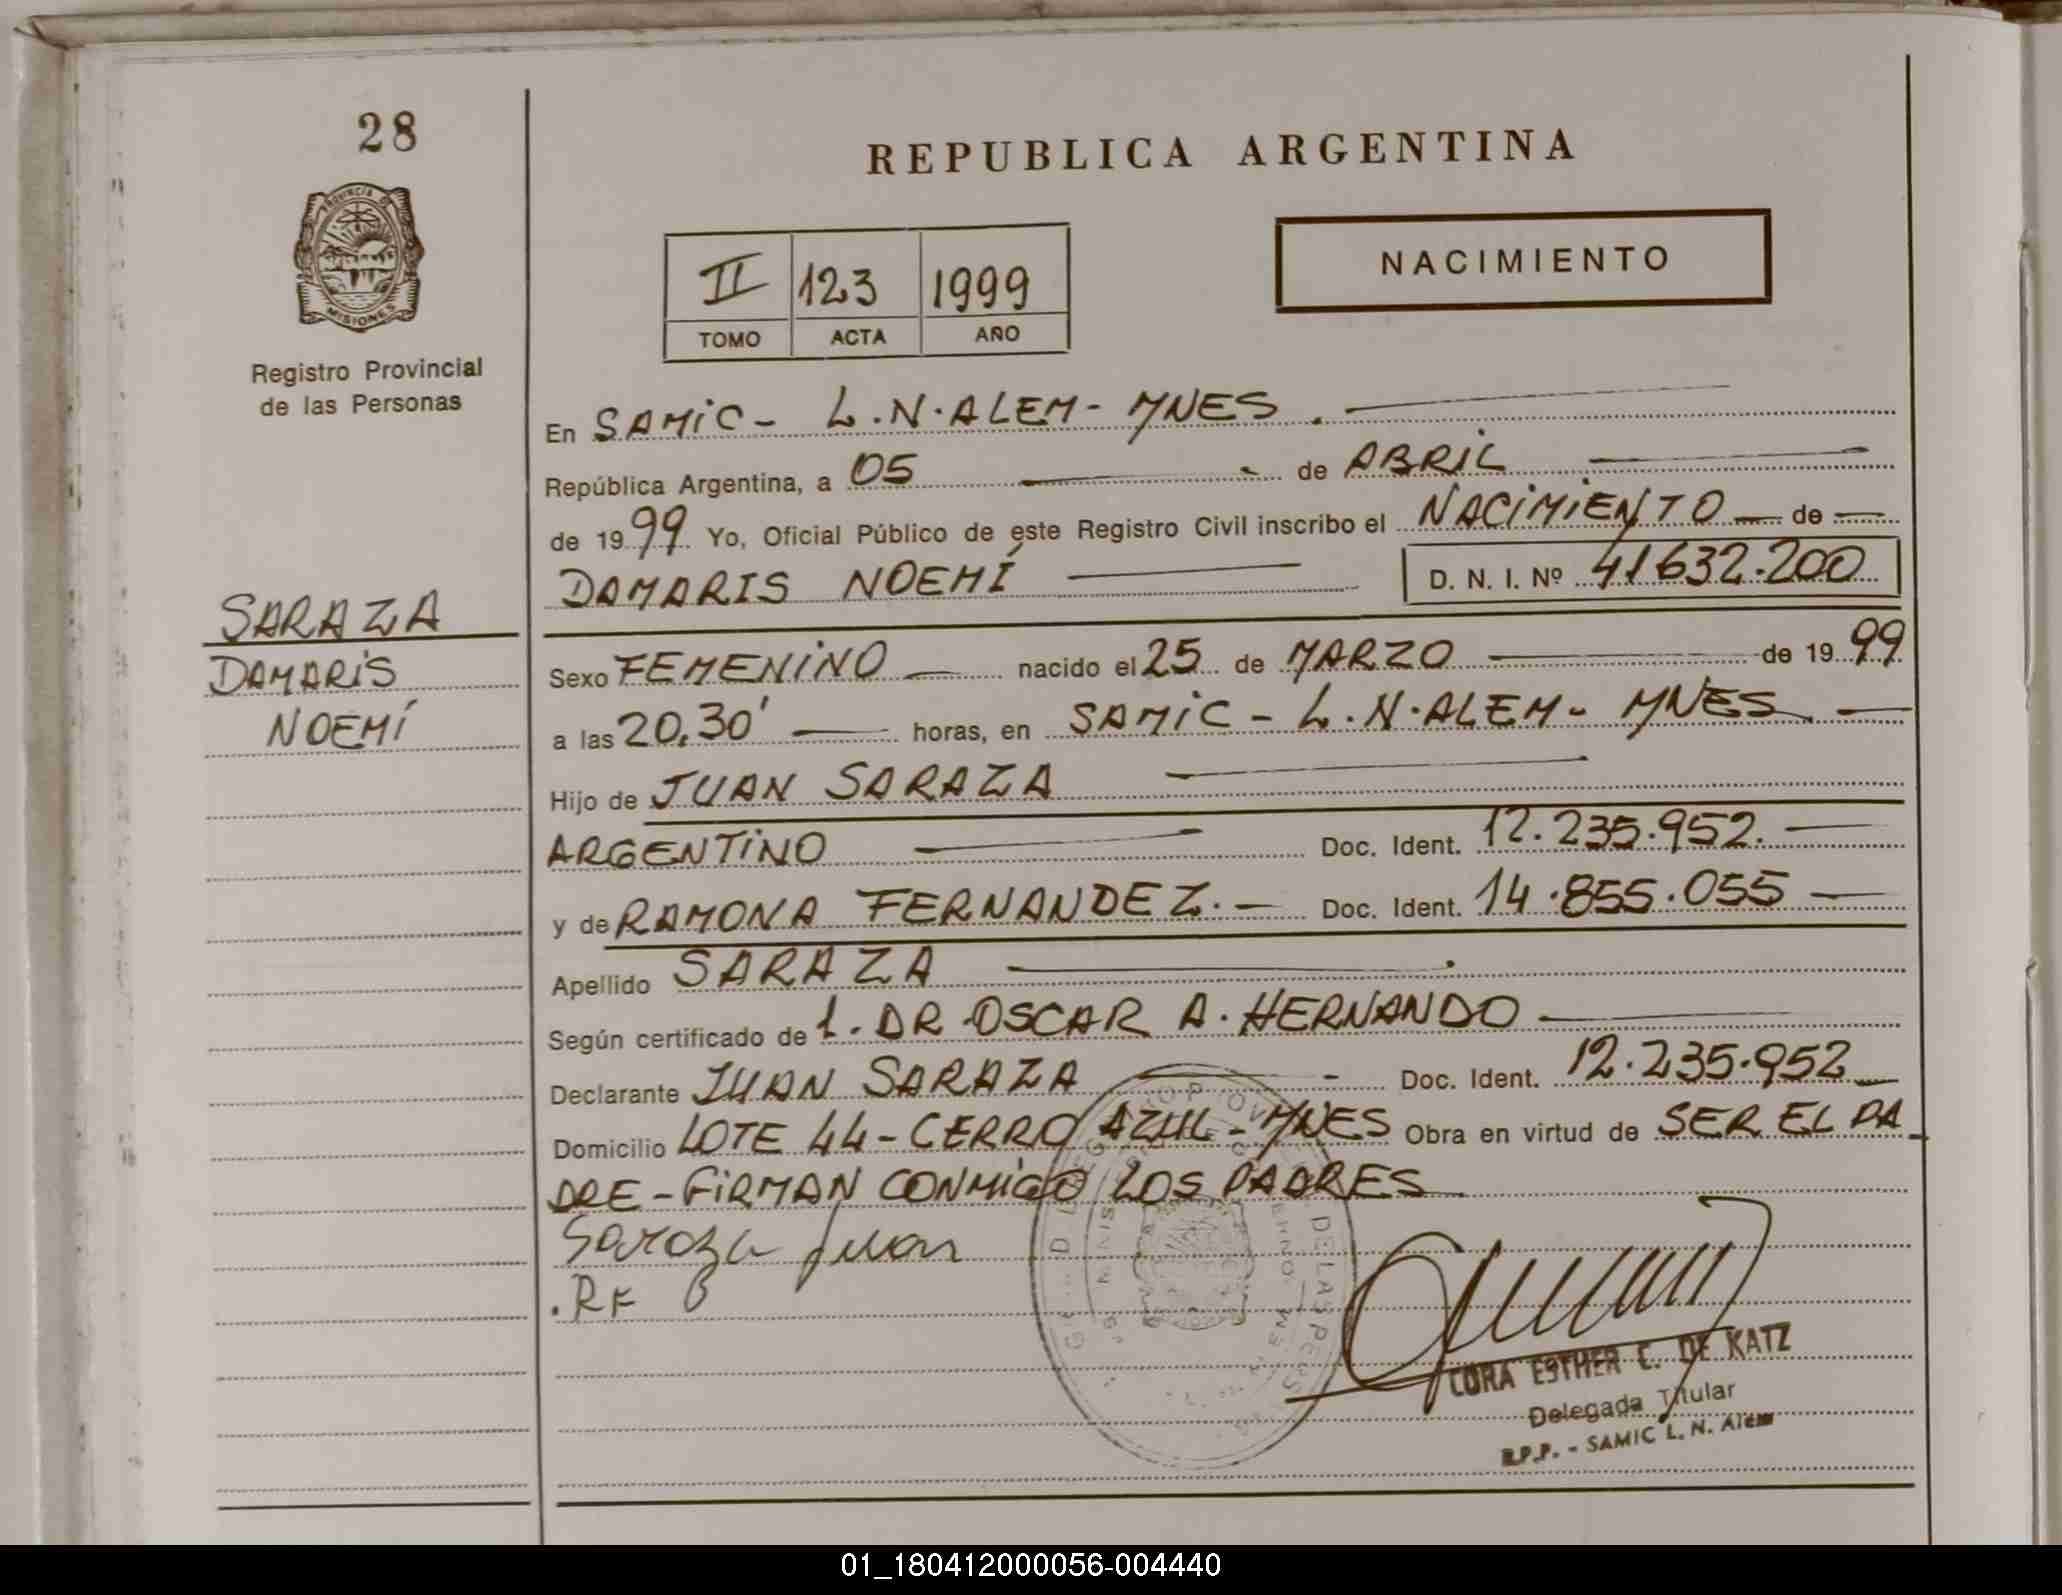 28
REPUBLICA ARGENTINA
PROVINCIA DE
MISIONES
II 123 1999
TOMO ACTA AÑO
NACIMIENTO
Registro Provincial
de las Personas
En SAMIC - L.N.ALEM - MNES.
República Argentina, a 05 de ABRIL
de 1999 Yo, Oficial Público de este Registro Civil inscribo el NACIMIENTO de
DAMARIS NOEMÍ D. N. I. Nº 41632.200
SARAZA
DAMARIS
NOEMÍ
Sexo FEMENINO nacido el 25 de MARZO de 1999
a las 20,30' horas, en SAMIC - L.N.ALEM - MNES.
Hijo de JUAN SARAZA
ARGENTINO Doc. Ident. 12.235.952.
y de RAMONA FERNANDEZ. Doc. Ident. 14.855.055
Apellido SARAZA
Según certificado de L. DR. OSCAR A. HERNANDO
Declarante JUAN SARAZA Doc. Ident. 12.235.952
Domicilio LOTE 44 - CERRO AZUL - MNES Obra en virtud de SER EL PA
DRE - FIRMAN CONMIGO LOS PADRES
Saraza Juan
.RF
CORA ESTHER C. DE KATZ
Delegada Titular
R.P.P. - SAMIC L. N. Alem
01_180412000056-004440